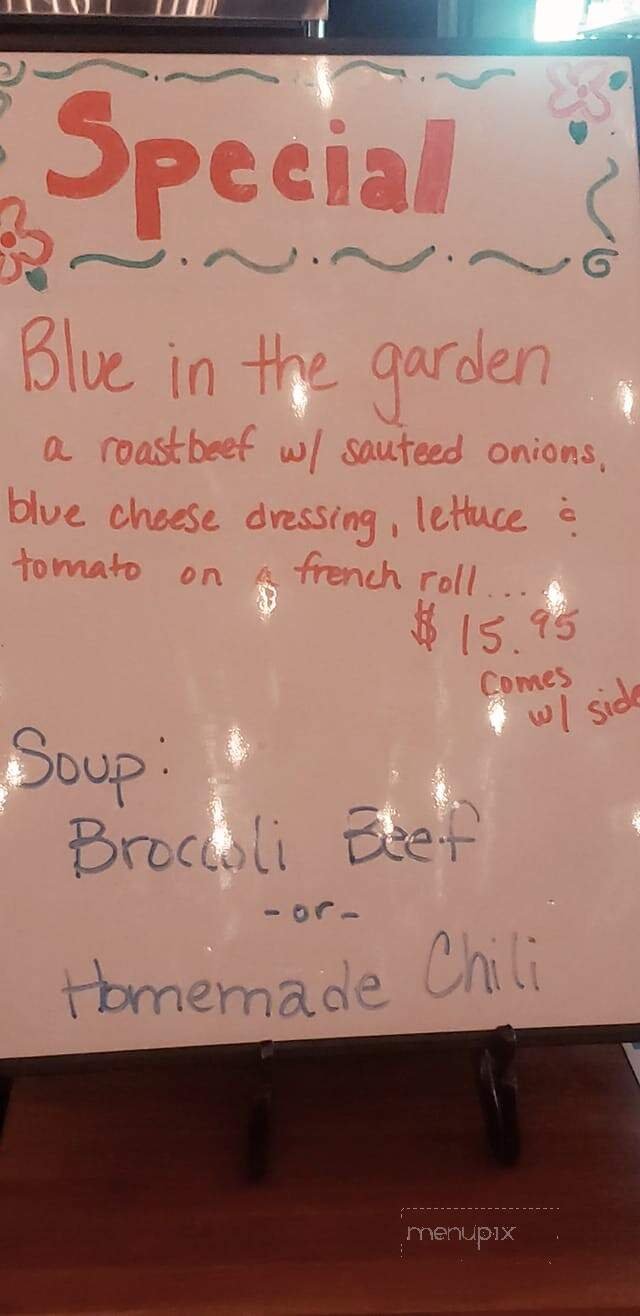 Special
Blue in the garden
a roastbeef w/ sauteed onions,
blue cheese dressing, lettuce &
tomato on a french roll...
$ 15.95
comes
w/ side
Soup:
Broccoli Beef
-or-
Homemade Chili
menupix